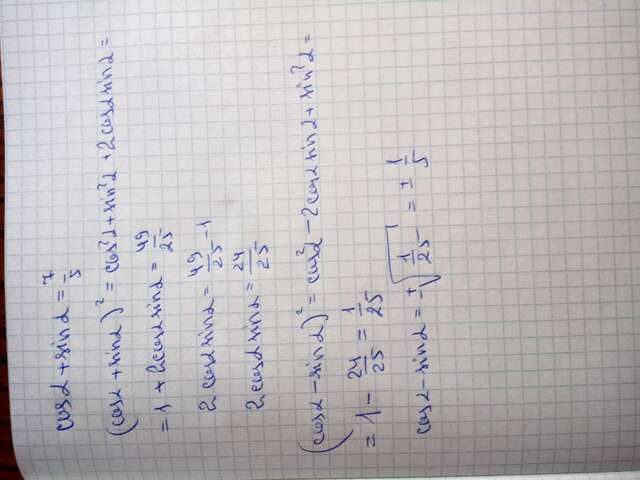 cosα + sinα = 7/5
(cosα + sinα)² = cos²α + sin²α + 2cosα sinα =
= 1 + 2cosα sinα = 49/25
2 cosα sinα = 49/25 - 1
2 cosα sinα = 24/25
(cosα - sinα)² = cos²α - 2cosα sinα + sin²α =
= 1 - 24/25 = 1/25
cosα - sinα = ±√(1/25) = ± 1/5